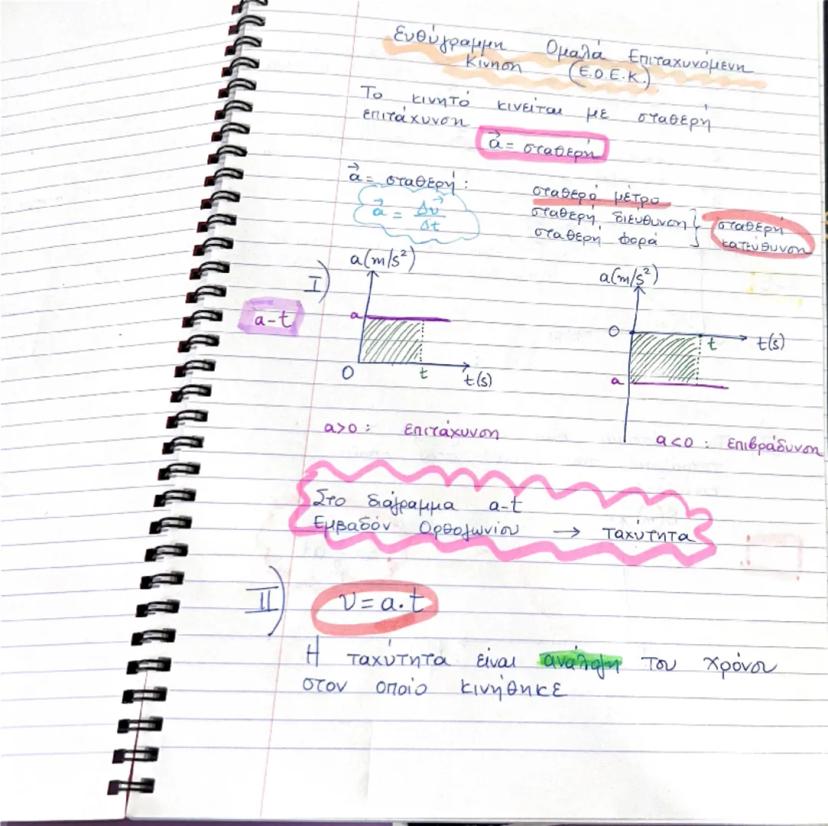 Ευθύγραμμη Ομαλά Επιταχυνόμενη
Κίνηση (Ε.Ο.Ε.Κ.)
Το κινητό κινείται με σταθερή
επιτάχυνση
a⃗ = σταθερή
a⃗ = σταθερή: σταθερό μέτρο
a⃗ = Δv⃗/Δt
σταθερή διεύθυνση } σταθερή
σταθερή φορά κατεύθυνση
I)
a-t
a(m/s²)
a
0 t t(s)
a(m/s²)
0 t t(s)
a
a>0: επιτάχυνση
a<0: επιβράδυνση
Στο διάγραμμα a-t
Εμβαδόν Ορθογωνίου → ταχύτητα
II) v = a·t
Η ταχύτητα είναι ανάλογη του χρόνου
στον οποίο κινήθηκε